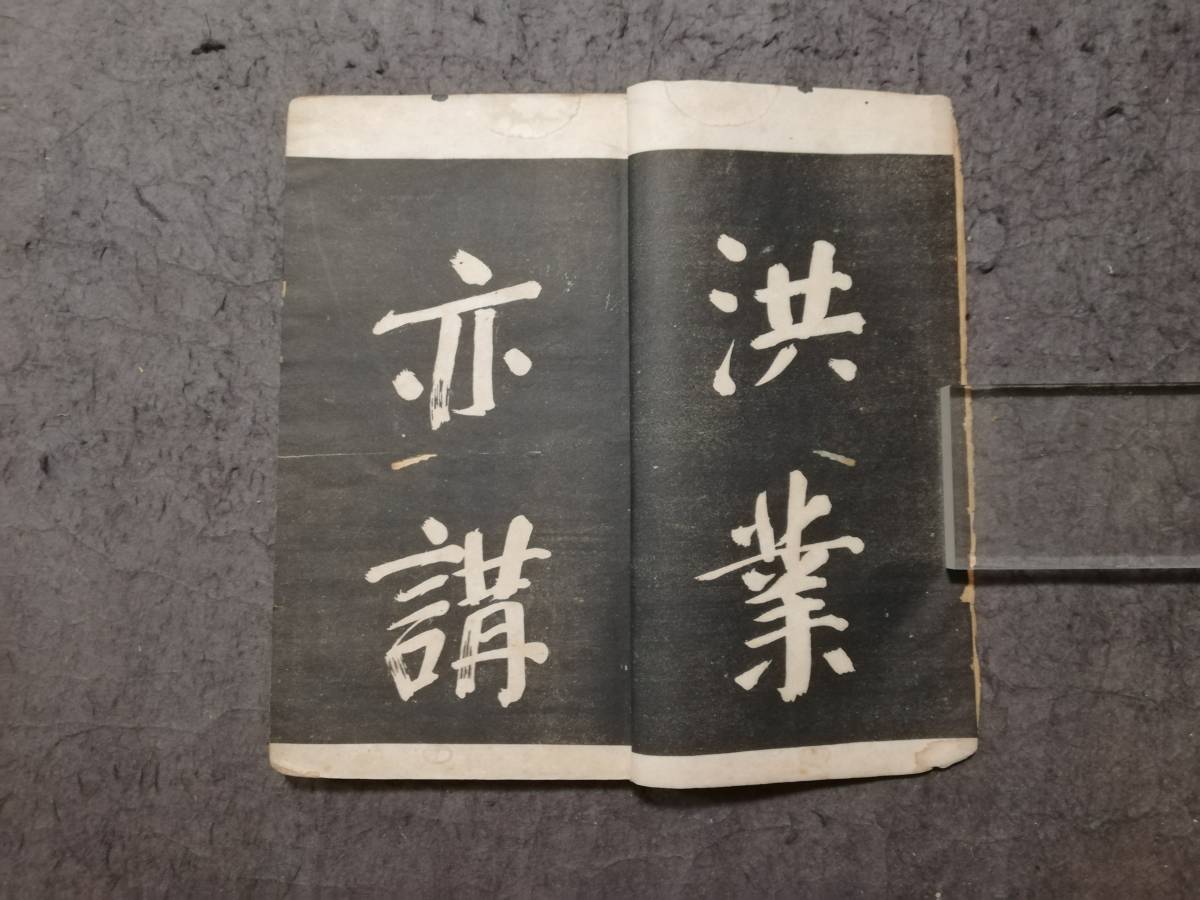 洪業
亦講